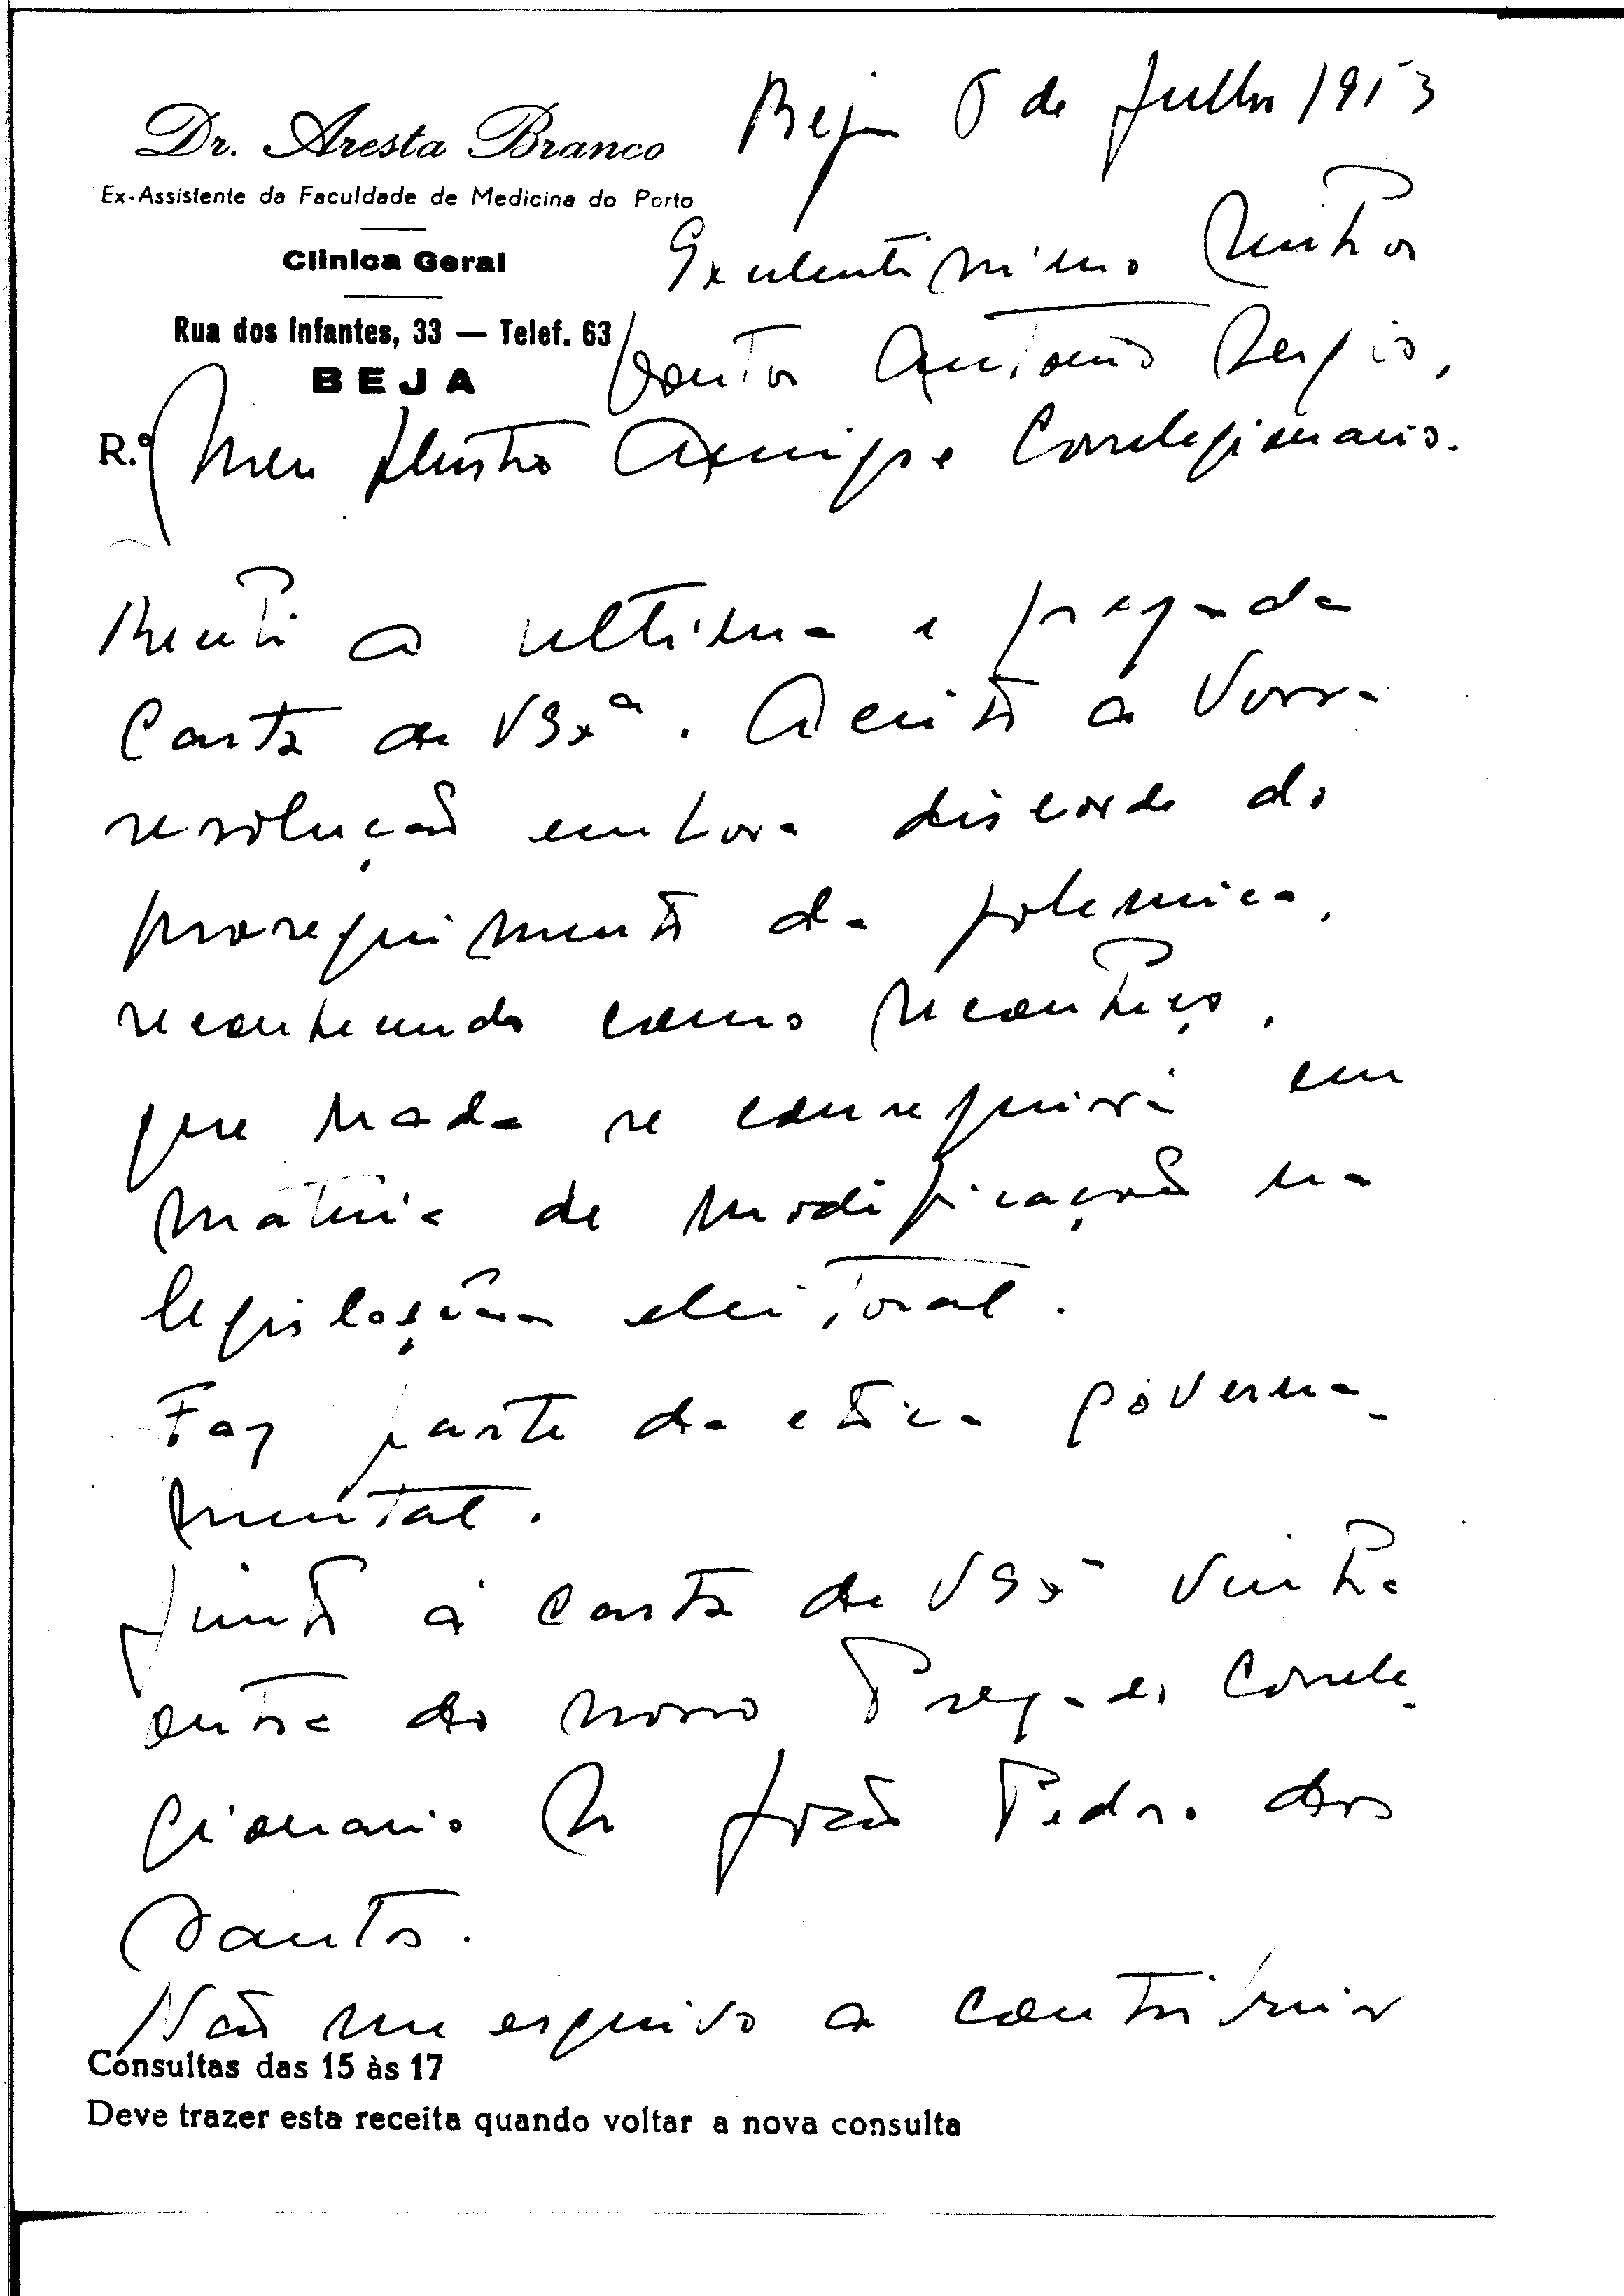 Dr. Aresta Branco
Ex-Assistente da Faculdade de Medicina do Porto
Clinica Geral
Rua dos Infantes, 33 — Telef. 63
BEJA
R.e
Beja 6 de Julho 1953
Excelentissimo Senhor
Doutor Antonio Sergio,
Meu Ilustre Amigo e Correlegionario.
Recebi a ultima e prezada
Carta de VExª. Aceito a Vossa
resolução embora discorde do
proseguimento da polemica,
reconhecendo como reconheço,
que nada se conseguirá em
matéria de modificação na
legislação eleitoral.
Faz parte da etica governa-
mental.
Junto à Carta de VExª vinha
outra do nosso Prezado Correle-
gionario Sr João Pedro dos
Santos.
Não me esquivo a contribuir
Consultas das 15 às 17
Deve trazer esta receita quando voltar a nova consulta